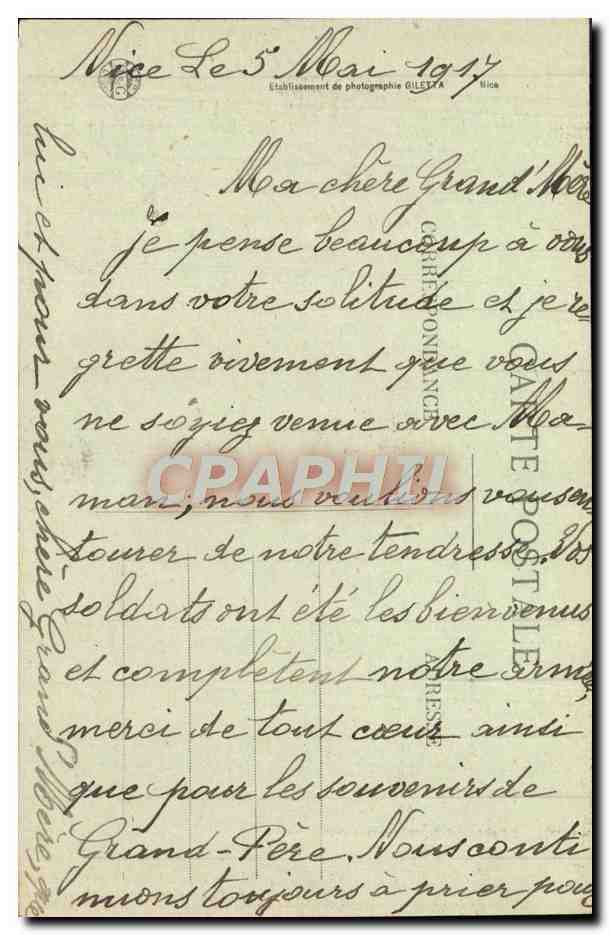 Nice Le 5 Mai 1917
Etablissement de photographie GILETTA Nice
Ma chère Grand'Mère
je pense beaucoup à vous
dans votre solitude et je re-
grette vivement que vous
ne soyiez venue avec Ma-
man; nous voulions vous en
tourer de notre tendresse. Vos
soldats ont été les bienvenus
et complètent notre armée,
merci de tout cœur ainsi
que pour les souvenirs de
Grand-Père. Nous conti
nuons toujours à prier pour
lui et pour vous, chère Grand'Mère, que
CARTE POSTALE
CORRESPONDANCE
ADRESSE
CPAPHIL